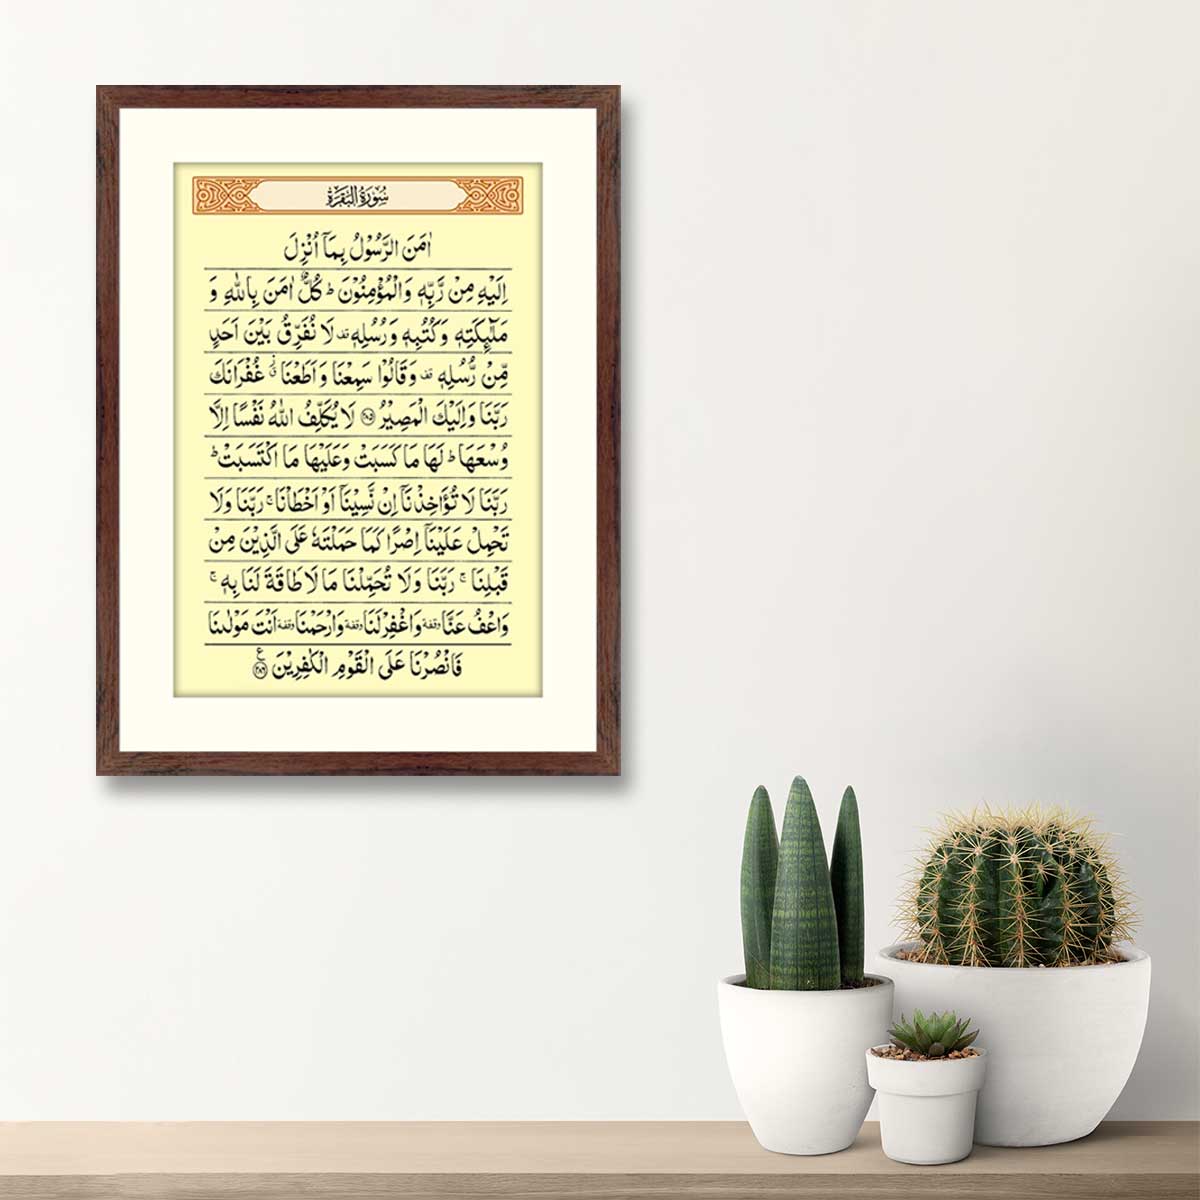 سُورَةُ الْبَقَرَةِ
اٰمَنَ الرَّسُوْلُ بِمَاۤ اُنْزِلَ
اِلَيْهِ مِنْ رَّبِّهٖ وَالْمُؤْمِنُوْنَ ؕ كُلٌّ اٰمَنَ بِاللّٰهِ وَ
مَلٰٓئِكَتِهٖ وَكُتُبِهٖ وَرُسُلِهٖ قف لَا نُفَرِّقُ بَيْنَ اَحَدٍ
مِّنْ رُّسُلِهٖ قف وَقَالُوْا سَمِعْنَا وَاَطَعْنَا ۗ غُفْرَانَكَ
رَبَّنَا وَاِلَيْكَ الْمَصِيْرُ ﴿۲۸۵﴾ لَا يُكَلِّفُ اللّٰهُ نَفْسًا اِلَّا
وُسْعَهَا ؕ لَهَا مَا كَسَبَتْ وَعَلَيْهَا مَا اكْتَسَبَتْ ؕ
رَبَّنَا لَا تُؤَاخِذْنَاۤ اِنْ نَّسِيْنَاۤ اَوْ اَخْطَاْنَا ۚ رَبَّنَا وَلَا
تَحْمِلْ عَلَيْنَاۤ اِصْرًا كَمَا حَمَلْتَهٗ عَلَى الَّذِيْنَ مِنْ
قَبْلِنَا ۚ رَبَّنَا وَلَا تُحَمِّلْنَا مَا لَا طَاقَةَ لَنَا بِهٖ ۚ
وَاعْفُ عَنَّا وقفة وَاغْفِرْ لَنَا وقفة وَارْحَمْنَا وقفة اَنْتَ مَوْلٰىنَا
فَانْصُرْنَا عَلَى الْقَوْمِ الْكٰفِرِيْنَ ﴿۲۸۶﴾ ع